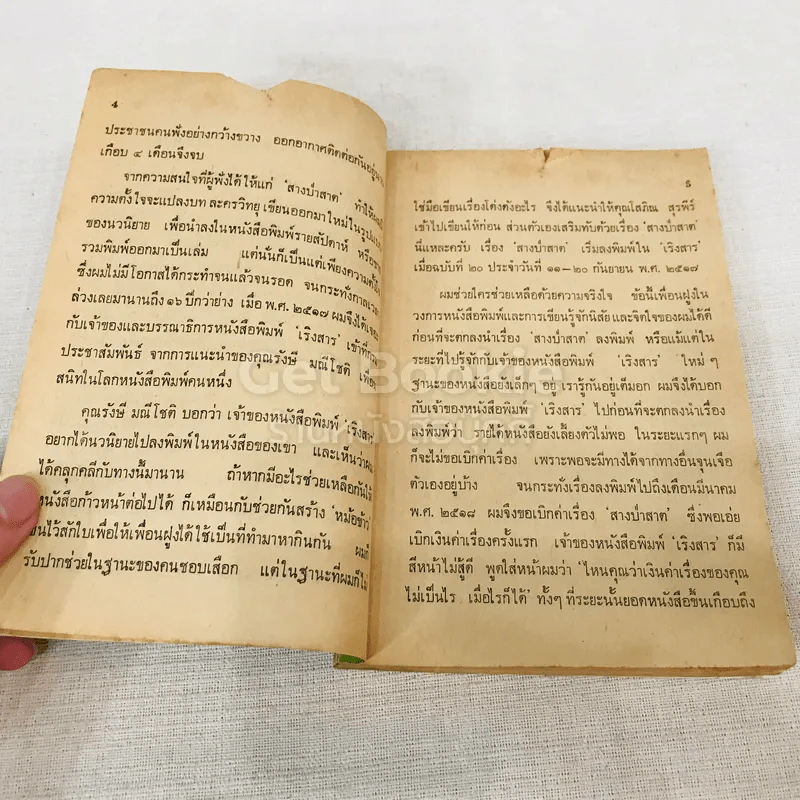 4
ประชาชนคนฟังอย่างกว้างขวาง ออกอากาศติดต่อกันอยู่
เกือบ ๔ เดือนจึงจบ
จากความสนใจที่ผู้ฟังได้ให้แก่ 'สางป่าสาด'
ความตั้งใจจะแปลงบทละครวิทยุ เขียนออกมาใหม่ในรูป
ของนวนิยาย เพื่อนำลงในหนังสือพิมพ์รายสัปดาห์ หรือ
รวมพิมพ์ออกมาเป็นเล่ม แต่นั่นก็เป็นแต่เพียงความ
ซึ่งผมไม่มีโอกาสได้กระทำจนแล้วจนรอด จนกระทั่งกาลเวลา
ล่วงเลยมานานถึง ๑๖ ปีกว่าย่าง เมื่อ พ.ศ. ๒๕๑๗ ผมจึงได้
กับเจ้าของและบรรณาธิการหนังสือพิมพ์ 'เริงสาร' เข้าที่
ประชาสัมพันธ์ จากการแนะนำของคุณรังษี มณีโชติ เพื่อน
สนิทในโลกหนังสือพิมพ์คนหนึ่ง
คุณรังษี มณีโชติ บอกว่า เจ้าของหนังสือพิมพ์ 'เริงสาร'
อยากได้นวนิยายไปลงพิมพ์ในหนังสือของเขา และเห็นว่าผม
ได้คลุกคลีกับทางนี้มานาน ถ้าหากมีอะไรช่วยเหลือกันให้
หนังสือก้าวหน้าต่อไปได้ ก็เหมือนกับช่วยกันสร้าง 'หม้อข้าว'
ขึ้นไว้สักใบเพื่อให้เพื่อนฝูงได้ใช้เป็นที่ทำมาหากินกัน ผมก็
รับปากช่วยในฐานะของคนชอบเสือก แต่ในฐานะที่ผมก็ไม่
5
ใช่มือเขียนเรื่องโด่งดังอะไร จึงได้แนะนำให้คุณโสภิณ สุรพีร์
เข้าไปเขียนให้ก่อน ส่วนตัวเองเสริมทับด้วยเรื่อง 'สางป่าสาด'
นี่แหละครับ เรื่อง 'สางป่าสาด' เริ่มลงพิมพ์ใน 'เริงสาร'
เมื่อฉบับที่ ๒๐ ประจำวันที่ ๑๑–๒๐ กันยายน พ.ศ. ๒๕๑๗
ผมช่วยใครช่วยเหลือด้วยความจริงใจ ข้อนี้เพื่อนฝูงใน
วงการหนังสือพิมพ์และการเขียนรู้จักนิสัย และจิตใจของผมได้ดี
ก่อนที่จะตกลงนำเรื่อง 'สางป่าสาด' ลงพิมพ์ หรือแม้แต่ใน
ระยะที่ไปรู้จักกับเจ้าของหนังสือพิมพ์ 'เริงสาร' ใหม่ ๆ
ฐานะของหนังสือยังเล็กๆ อยู่ เรารู้กันอยู่เต็มอก ผมจึงได้บอก
กับเจ้าของหนังสือพิมพ์ 'เริงสาร' ไปก่อนที่จะตกลงนำเรื่อง
ลงพิมพ์ว่า รายได้หนังสือยังเลี้ยงตัวไม่พอ ในระยะแรกๆ ผม
ก็จะไม่ขอเบิกค่าเรื่อง เพราะพอจะมีทางได้จากทางอื่นจุนเจือ
ตัวเองอยู่บ้าง จนกระทั่งเรื่องลงพิมพ์ไปถึงเดือนมีนาคม
พ.ศ. ๒๕๑๘ ผมจึงขอเบิกค่าเรื่อง 'สางป่าสาด' ซึ่งพอเอ่ย
เบิกเงินค่าเรื่องครั้งแรก เจ้าของหนังสือพิมพ์ 'เริงสาร' ก็มี
สีหน้าไม่สู้ดี พูดใส่หน้าผมว่า 'ไหนคุณว่าเงินค่าเรื่องของคุณ
ไม่เป็นไร เมื่อไรก็ได้' ทั้งๆ ที่ระยะนั้นยอดหนังสือขึ้นเกือบถึง